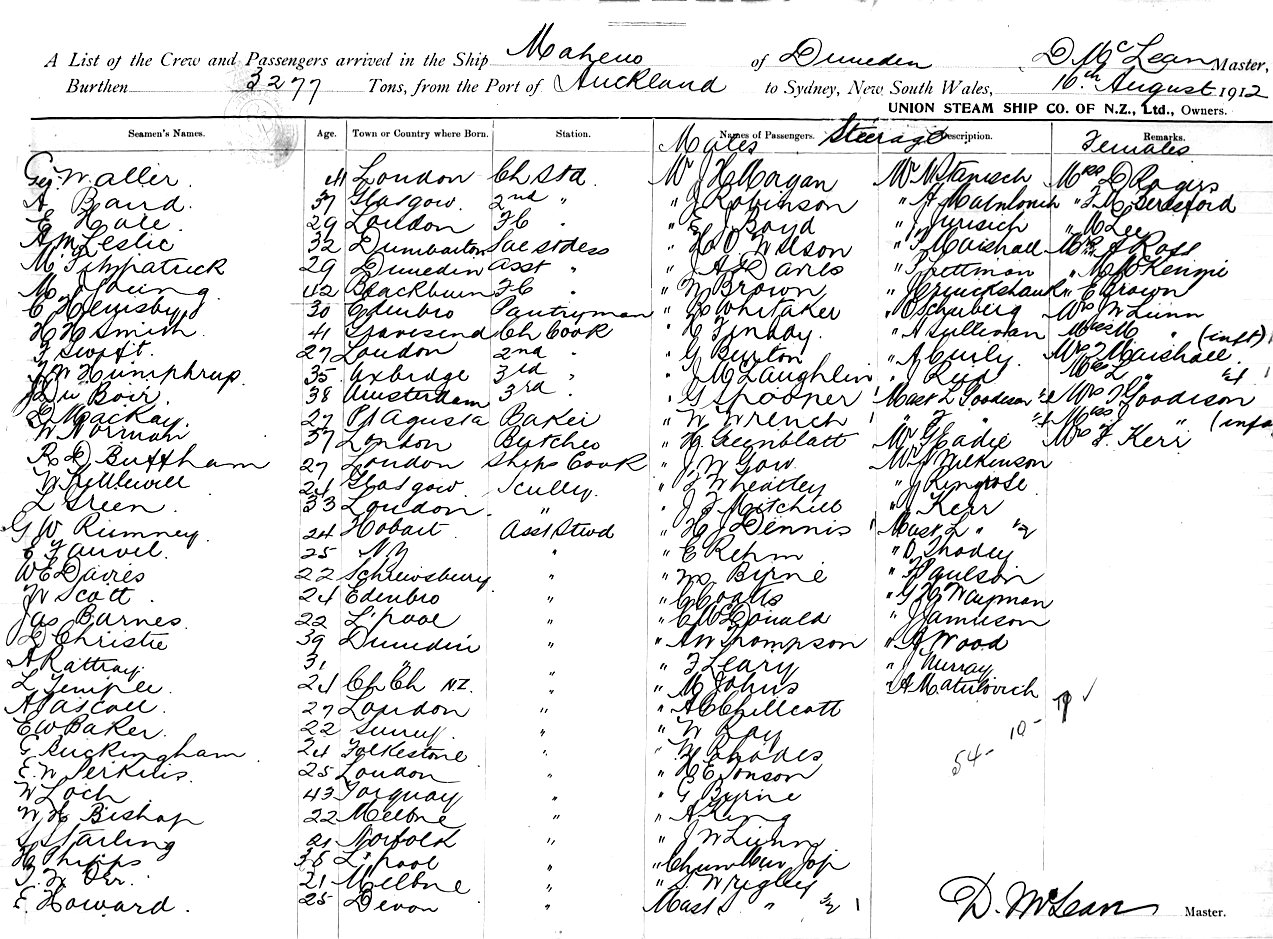 A List of the Crew and Passengers arrived in the Ship Maheno of Duneden D McLean Master,
Burthen 3277 Tons, from the Port of Auckland to Sydney, New South Wales, 10th August 1912
UNION STEAM SHIP CO. OF N.Z., Ltd., Owners.
Seamen's Names. Age. Town or Country where Born. Station. Names of Passengers. Steerage Description. Remarks.
Males Females
Waller 41 London Ch Std Mr J H Morgan Mr N Stanisch Miss D Rogers
A Baird 37 Glasgow 2nd " " J Robinson " A Beresford
E Hale 29 London " E J Boyd " Jurisich " M Lee
A M Leslie 32 Dumbarton " H O Wilson " T Marshall Ross
M Fitzpatrick 29 Dunedin asst " " A Davies " Pettman " M McKenzie
M Young 42 Blackburn " W Brown " J Cruickshank " E Brown
C Hemsby 30 Edinbro Pantryman " R Whitaker Mrs J W Lunn
H H Smith 41 Gravesend Ch Cook " A Sullivan Miss M " (inft) 1
G Swift 27 London 2nd " " G Burton " A Curly Mrs T Marshall
J W Humphrup 35 Axbridge 3rd " " J McLaughlin " J Reid Miss L " 1
J Du Boir 38 Amsterdam 3rd " G Spooner Mast L Goodison Mrs T Goodison
D MacKay 27 Pt Agusta Baker " W Wrench " " Miss " (infa
W Norman 37 London Butcher " H Greenblatt Mr G Eadie Mrs F. Kerr
R D Buttham 27 London Ships Cook " J W Gow Mr J Wilkinson
W Kettlewell Glasgow Scully " J Wheatley " J Ringrose
L Green 33 London " " J F Mitchell " J Kerr
G W Rumney 24 Hobart Asst Stwd " H J Dennis Mast L " ½
E Fauvel 25 NZ " " E Rehm " D Thodey
W E Davies 22 Schrewsbury " " Byrne " F Paulson
W Scott 24 Edinbro " " C Coatts " G H Wayman
Jas Barnes 22 L'pool " " C McDonald " Jamieson
D Christie 39 Dunedin " " A W Thompson " A Wood
A Rattray 31 " " " F Leary " J Murray
L Temple 24 Ch Ch N.Z. " " M Johns " A Matulovich
A Pascoe 27 London " " A C Chillcott
E W Baker 22 Surrey " " W Ray 10-
G Buckingham 24 Folkestone " " H Rhodes 54-
E. W Perkins 25 London " " H E Jonson
W Loch 43 Torquay " " G Byrne
W H Bishop 22 Melbne " " A King
Starling 21 Norfolk " " J W Lunn
H Phipps 36 L'pool "
T. W Orr 21 Melbne " " Wrigley
E. Howard 25 Devon " Mast " ½ 1
D. McLean Master.